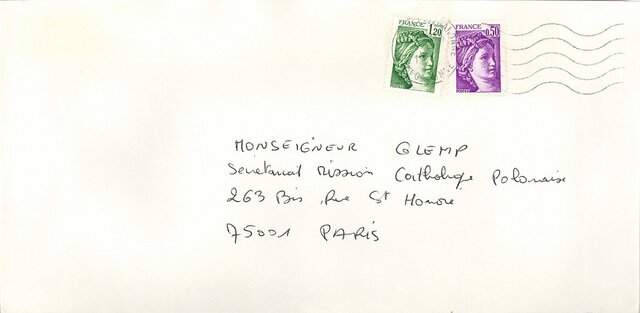 FRANCE 1,20
FRANCE 0,50
MONSEIGNEUR GLEMP
Secretariat Mission Catholique Polonaise
263 Bis, Rue St Honore
75001 PARIS